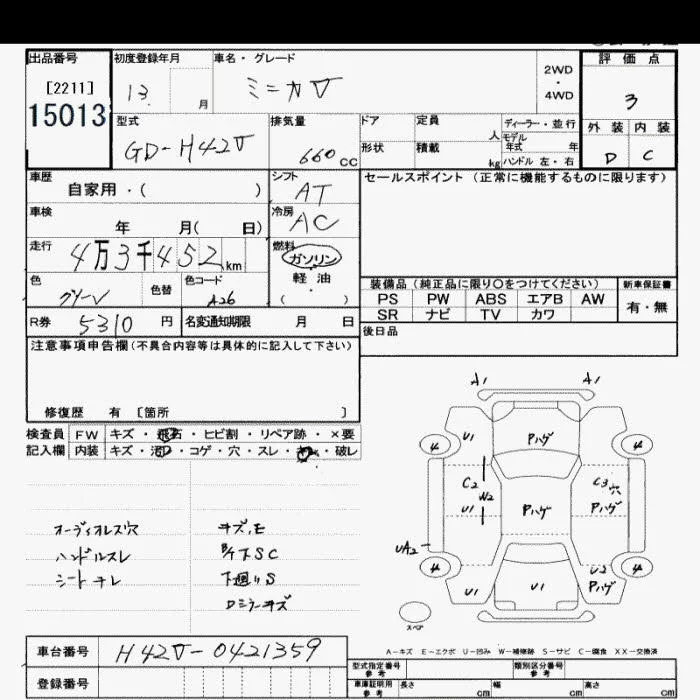 出品番号 初度登録年月 車名・グレード 2WD ・ 4WD 評価点
[2211] 13 月 ミニカV 3
15013
型式 排気量 ドア 定員 人 ディーラー・並行 外装 内装
GD-H42V 660 CC 形状 積載 kg モデル年式 年 D C
ハンドル 左・右
車歴 自家用・( ) シフト AT セールスポイント(正常に機能するものに限ります)
車検 年 月( 日) 冷房 AC
走行 4万3千452km 燃料 ガソリン
軽油
( ・ )
色 グリーン 色替 色コード A26
装備品(純正品に限り○をつけてください) 新車保証書
PS PW ABS エアB AW 有・無
SR ナビ TV カワ
R券 5310円 名変通知期限 月 日
後日品
注意事項申告欄(不具合内容等は具体的に記入して下さい)
修復歴 有 [箇所 ]
検査員 FW キズ・飛石・ヒビ割・リペア跡・×要
記入欄 内装 キズ・汚・コゲ・穴・スレ・・破レ
A1 A1
4 U1 Pハゲ 4
C2 W2 U1 Pハゲ C3 穴 Pハゲ
UA2
4 U1 U1 U2 Pハゲ 4
スペア
オーディオレス穴 キズ,E
ハンドルスレ 下SC
シートキレ 下廻りS
Dミラーキズ
A-キズ E-エクボ U-凹み W-補修跡 S-サビ C-腐食 XX-交換済
車台番号 H42V-0421359
登録番号
型式指定番号 参考 類別区分番号 参考
車庫証明用 参考 長さ cm 幅 cm 高さ cm